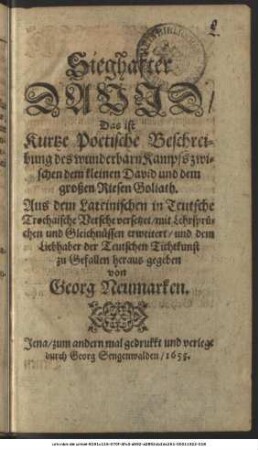 Sieghafter
DAVID/
Das ist
Kurtze Poetische Beschrei-
bung des wunderbarn Kampfs zwi-
schen dem kleinen David und dem
großen Riesen Goliath.
Aus dem Lateinischen in Teutsche
Trochaische Versche versetzet/ mit Lehrsprü-
chen und Gleichnüssen erweitert/ und dem
Liebhaber der Teutschen Tichtkunst
zu Gefallen heraus gegeben
von
Georg Neumarken.
Jena/ zum andern mal gedrukkt und verlegt
durch Georg Sengenwalden/ 1655.